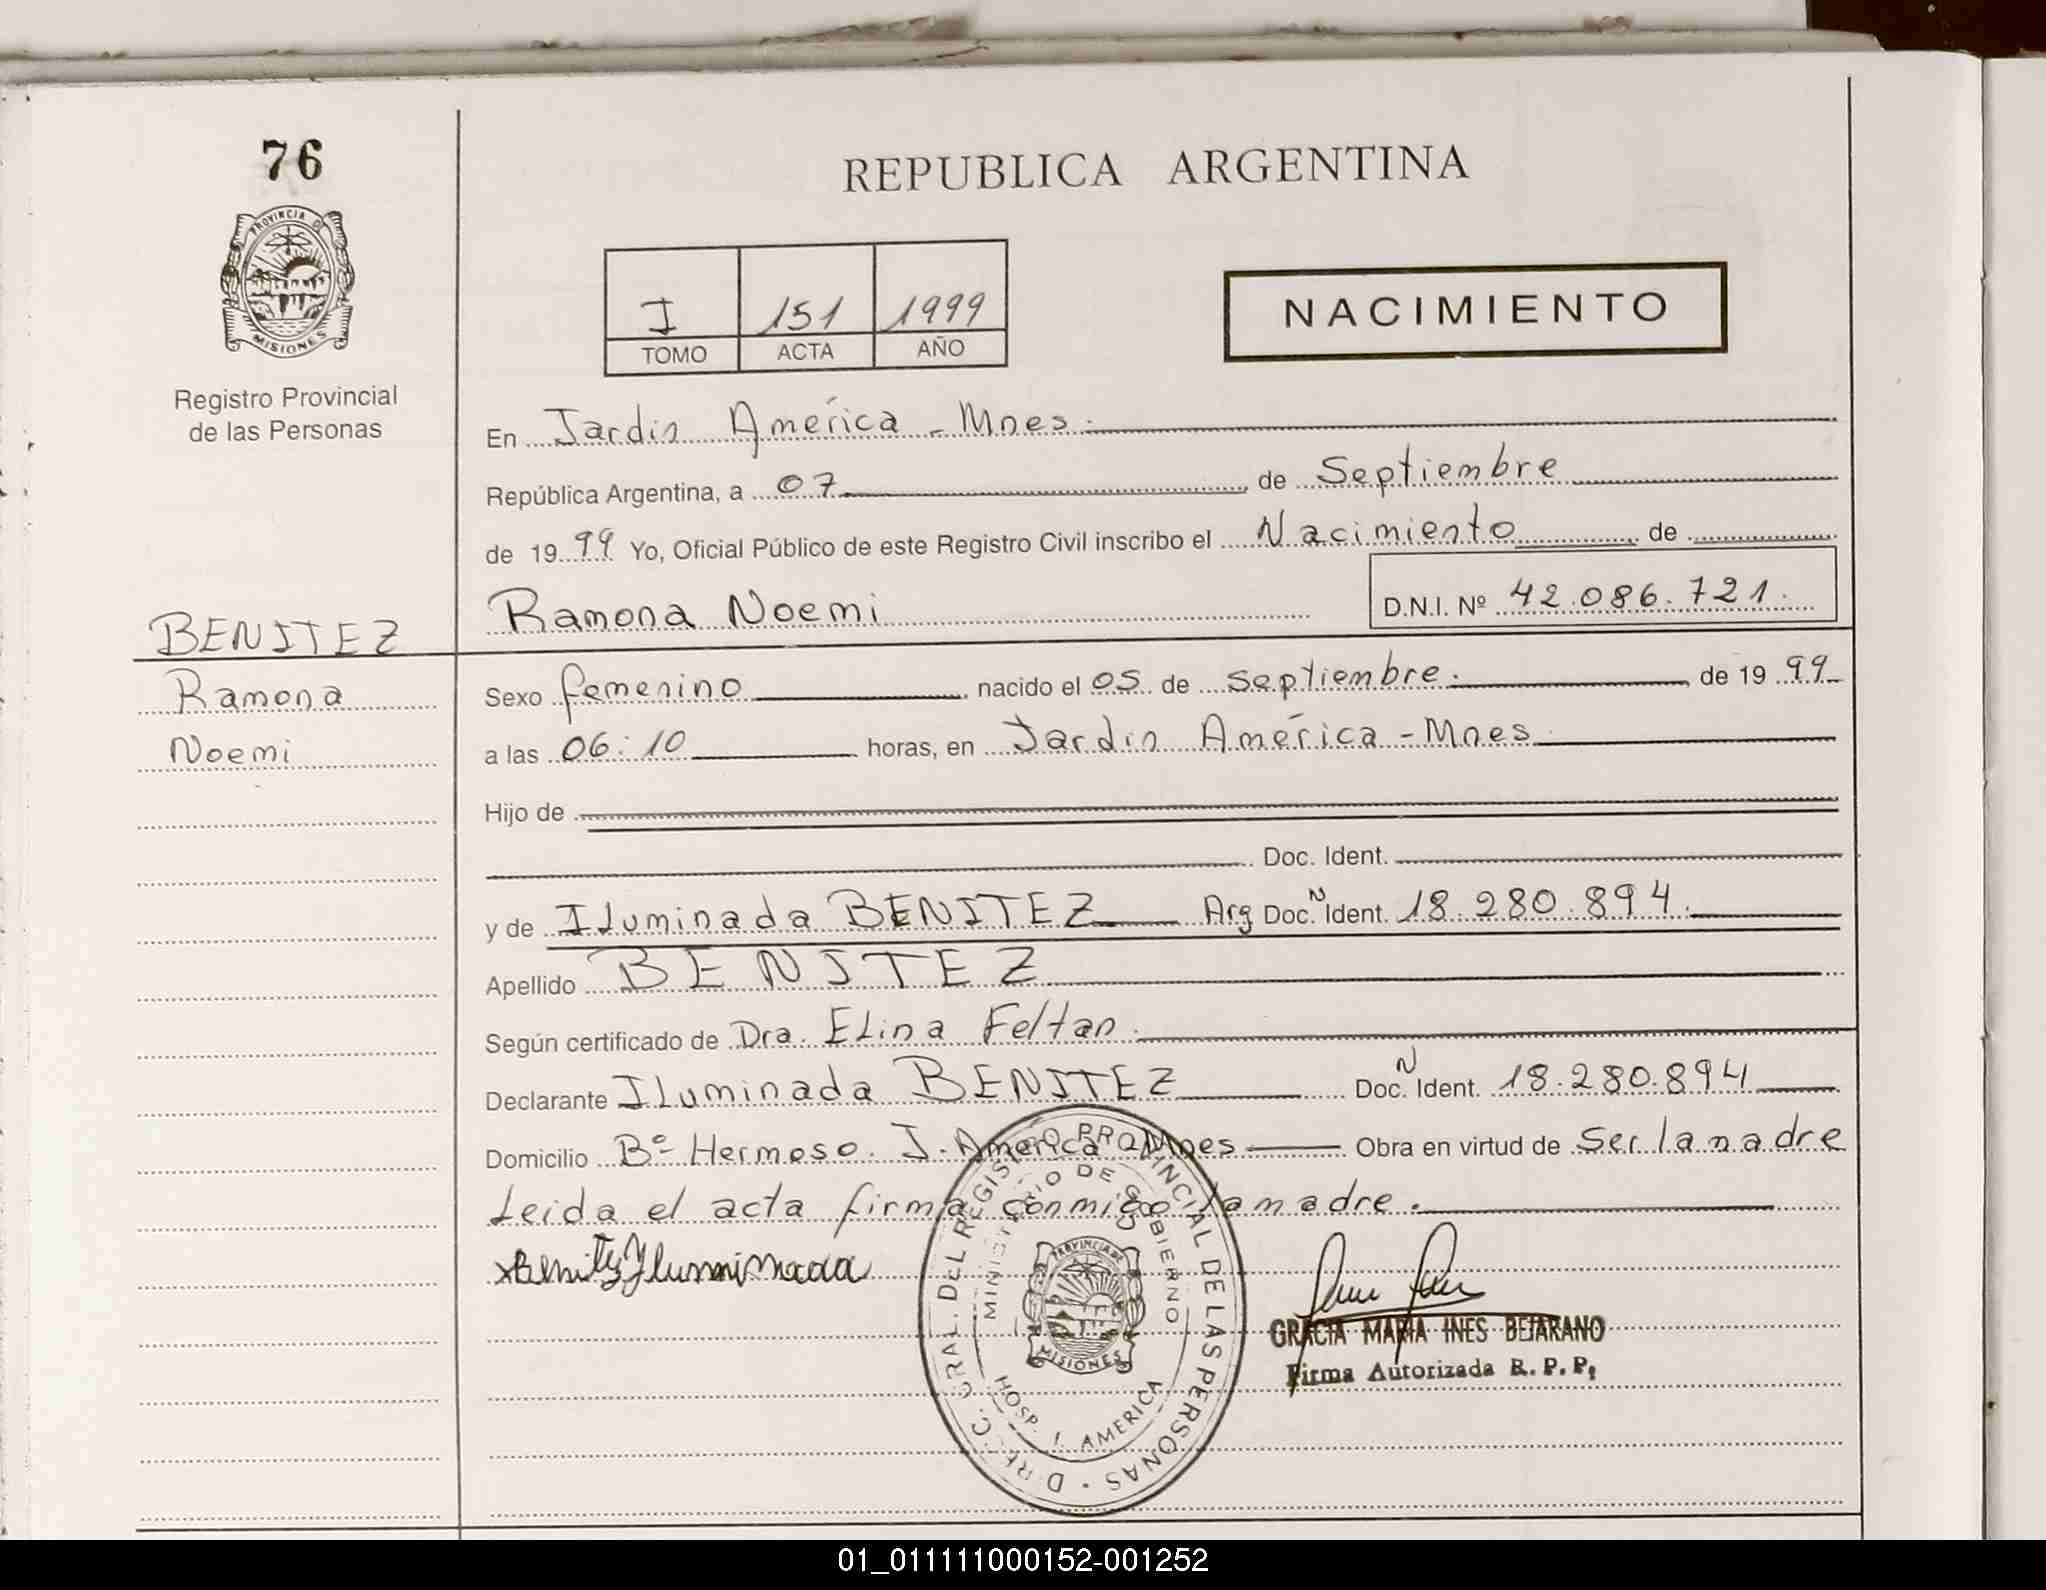 76
PROVINCIA DE
MISIONES
Registro Provincial
de las Personas
BENITEZ
Ramona
Noemi
REPUBLICA ARGENTINA
I 151 1999
TOMO ACTA AÑO
NACIMIENTO
En Jardin América - Mnes.
República Argentina, a 07 de Septiembre
de 19 99 Yo, Oficial Público de este Registro Civil inscribo el Nacimiento de
Ramona Noemi D.N.I. Nº 42.086.721.
Sexo femenino nacido el 05 de septiembre. de 19 99
a las 06:10 horas, en Jardin América - Mnes
Hijo de
Doc. Ident.
y de Iluminada BENITEZ Arg Doc. N Ident. 18.280.894.
Apellido BENITEZ
Según certificado de Dra. Elina Feltan.
Declarante Iluminada BENITEZ Doc. N Ident. 18.280.894
Domicilio Bº Hermoso. J. América Mnes Obra en virtud de Ser la madre
Leida el acta firma conmigo la madre.
x Benitez Iluminada
DIRECC. GRAL. DEL REGISTRO PROVINCIAL DE LAS PERSONAS
MINISTERIO DE GOBIERNO
PROVINCIA DE
MISIONES
HOSP. J. AMERICA
GRACIA MARIA INES BEJARANO
Firma Autorizada R. P. P.
01_011111000152-001252